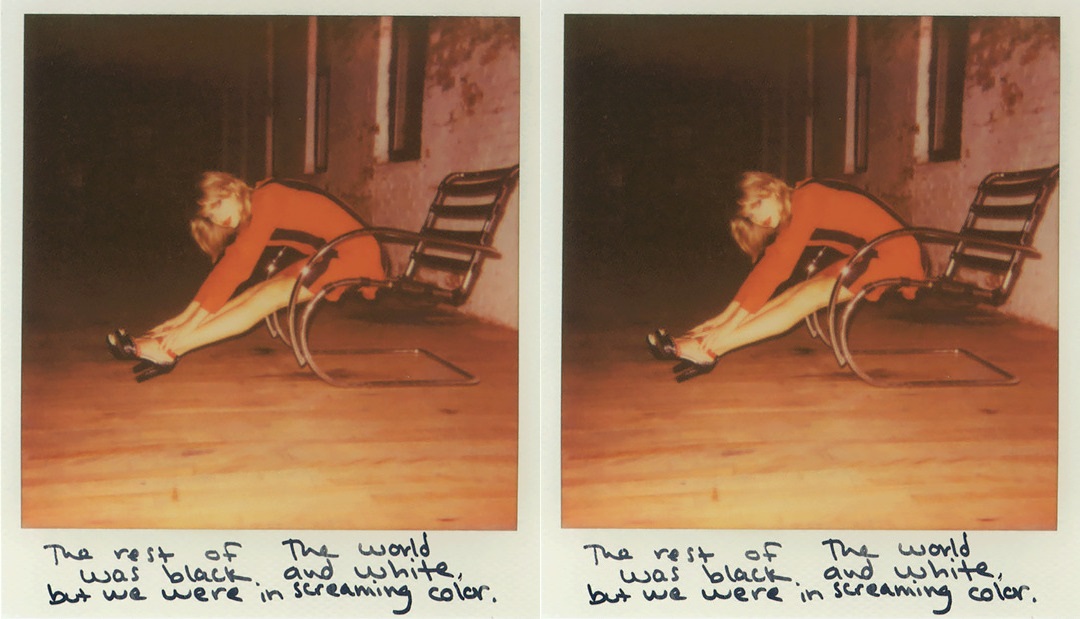 The rest of The world
was black and white,
but we were in screaming color.
The rest of The world
was black and white,
but we were in screaming color.